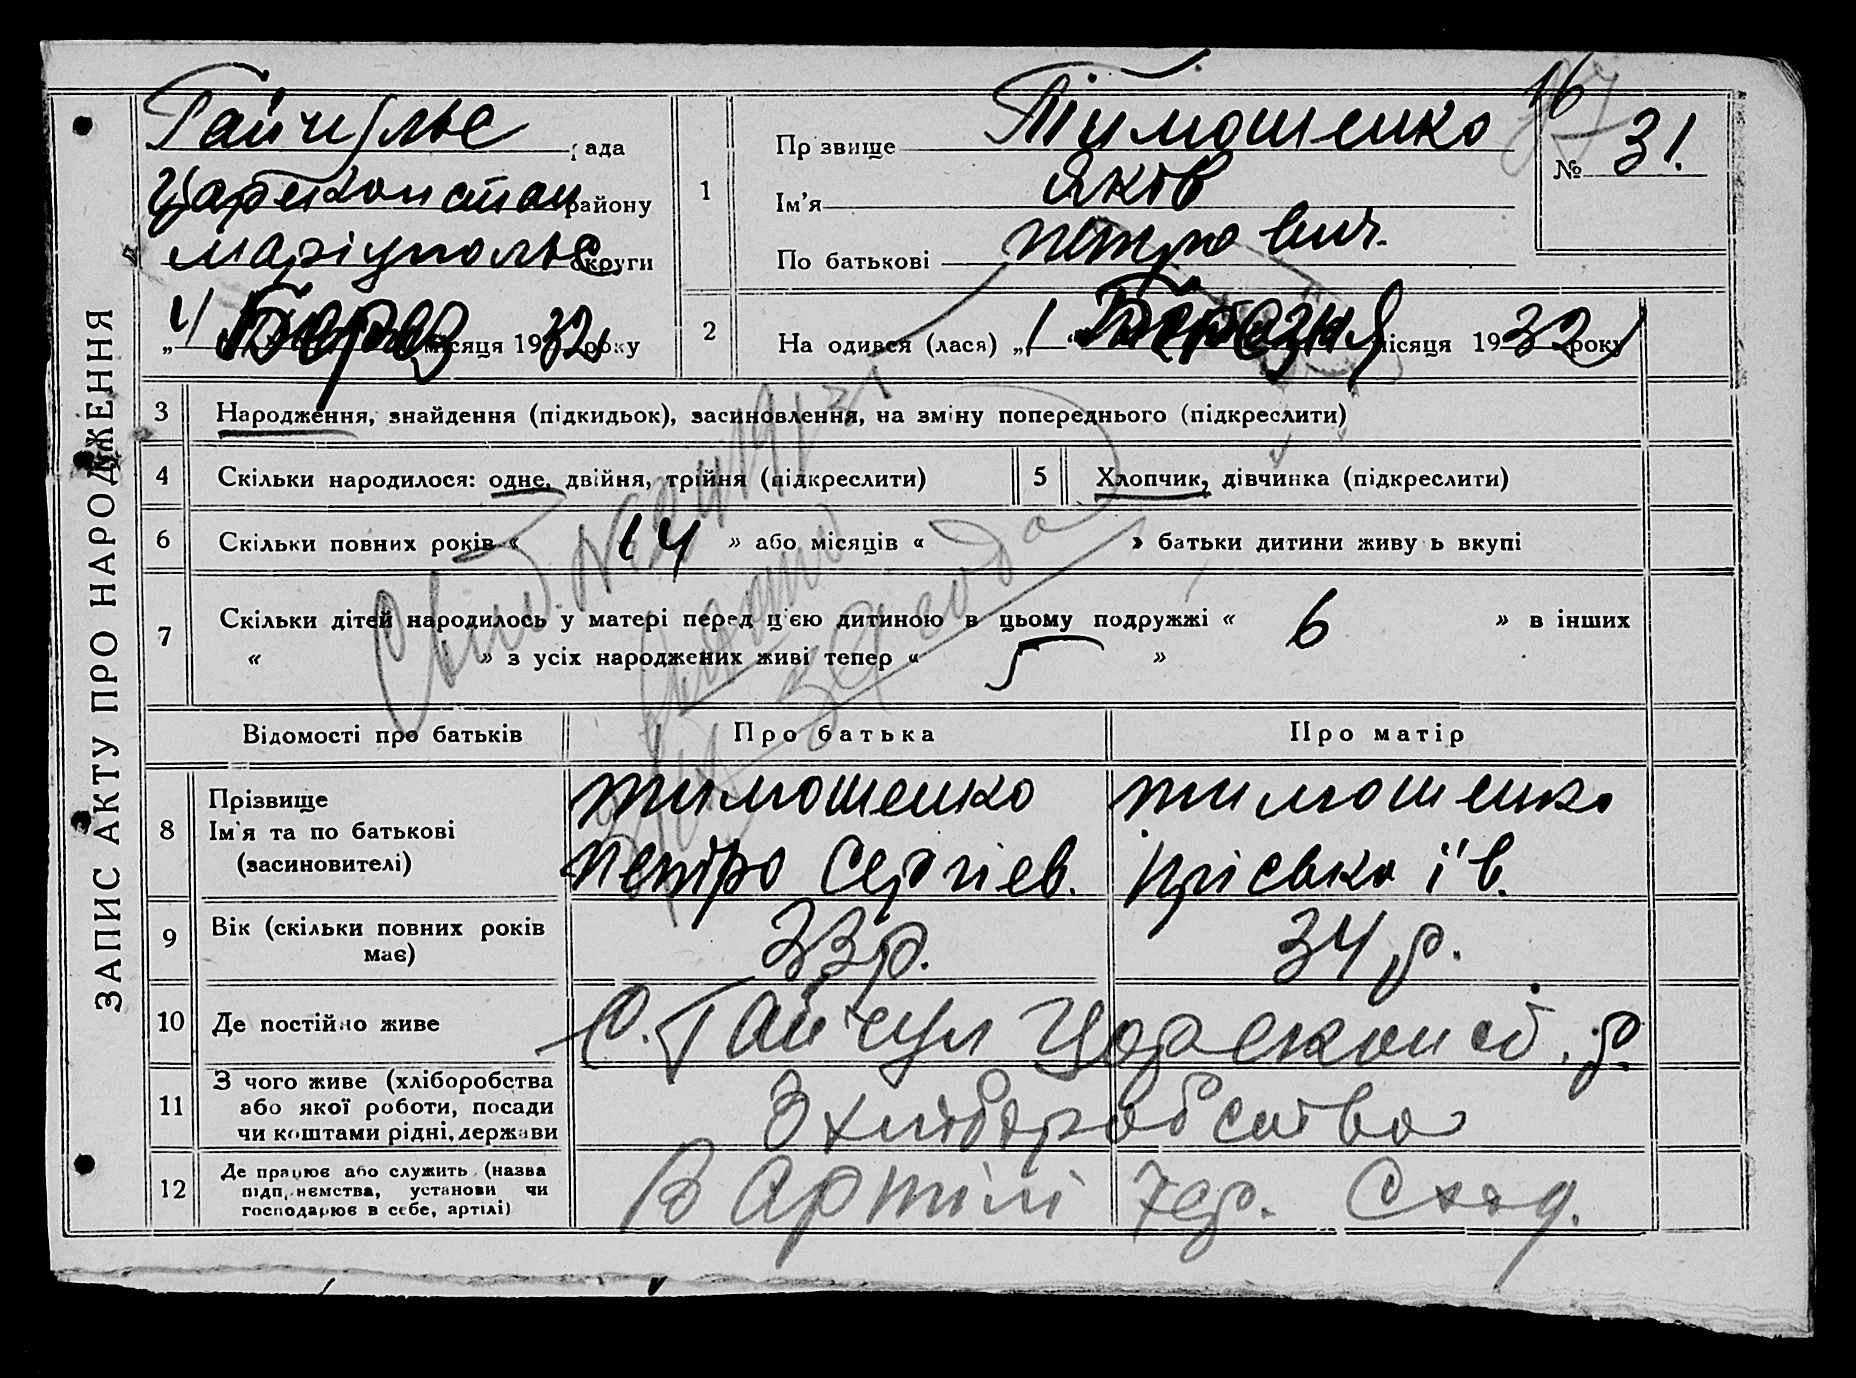 ЗАПИС АКТУ ПРО НАРОДЖЕННЯ
Гайчульс рада
Царекостан району
Маріупольс округи
„4 Берез місяця 1932 року
1 Прізвище Тимошенко
Ім'я Яків
По батькові Петрович.
16
№ 31.
2 Народився (лася) „1" Березня місяця 1932 року
3 Народження, знайдення (підкидьок), засиновлення, на зміну попереднього (підкреслити)
4 Скільки народилося: одне, двійня, трійня (підкреслити) 5 Хлопчик, дівчинка (підкреслити)
6 Скільки повних років « 14 » або місяців « » батьки дитини живуть вкупі
7 Скільки дітей народилось у матері перед цією дитиною в цьому подружжі « 6 » в інших
« » з усіх народжених живі тепер « 5 »
Відомості про батьків Про батька Про матір
8 Прізвище
Ім'я та по батькові
(засиновителі)
Тимошенко
Петро Сергієв.
Тимошенко
Пріська Ів.
9 Вік (скільки повних років
має)
33 р. 34 р.
10 Де постійно живе С. Гайчул Цареконст. р.
11 З чого живе (хліборобства
або якої роботи, посади
чи коштами рідні, держави
З хліборобства
12 Де працює або служить (назва
підприємства, установи чи
господарює в себе, артілі)
В Артілі Чер. Схід.